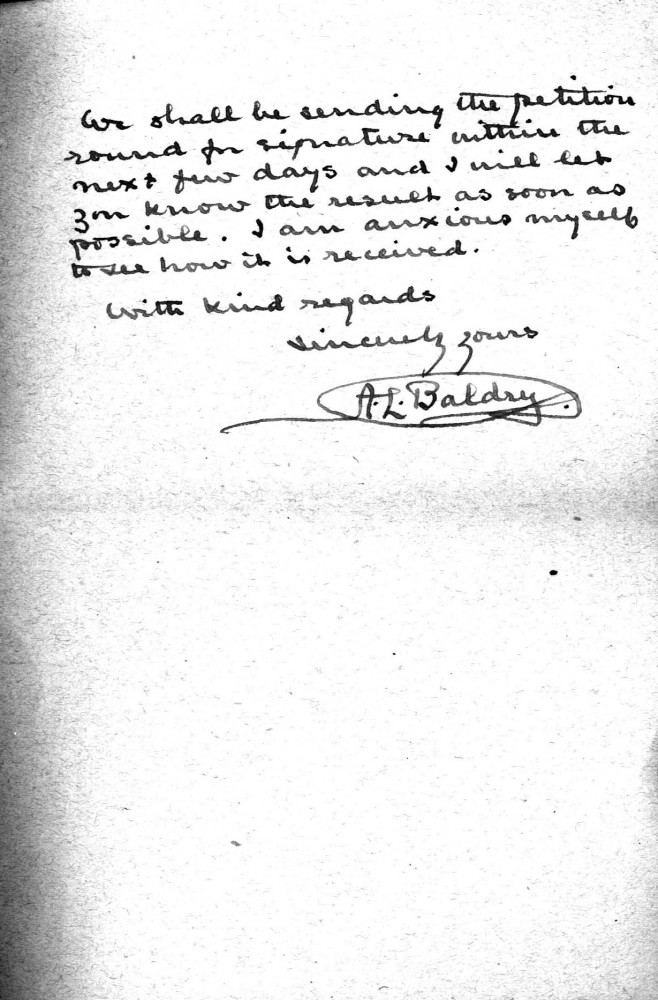 We shall be sending the petition
round for signature within the
next few days and I will let
you know the result as soon as
possible. I am anxious myself
to see how it is received.
With kind regards
Sincerely yours
A.L. Baldry.